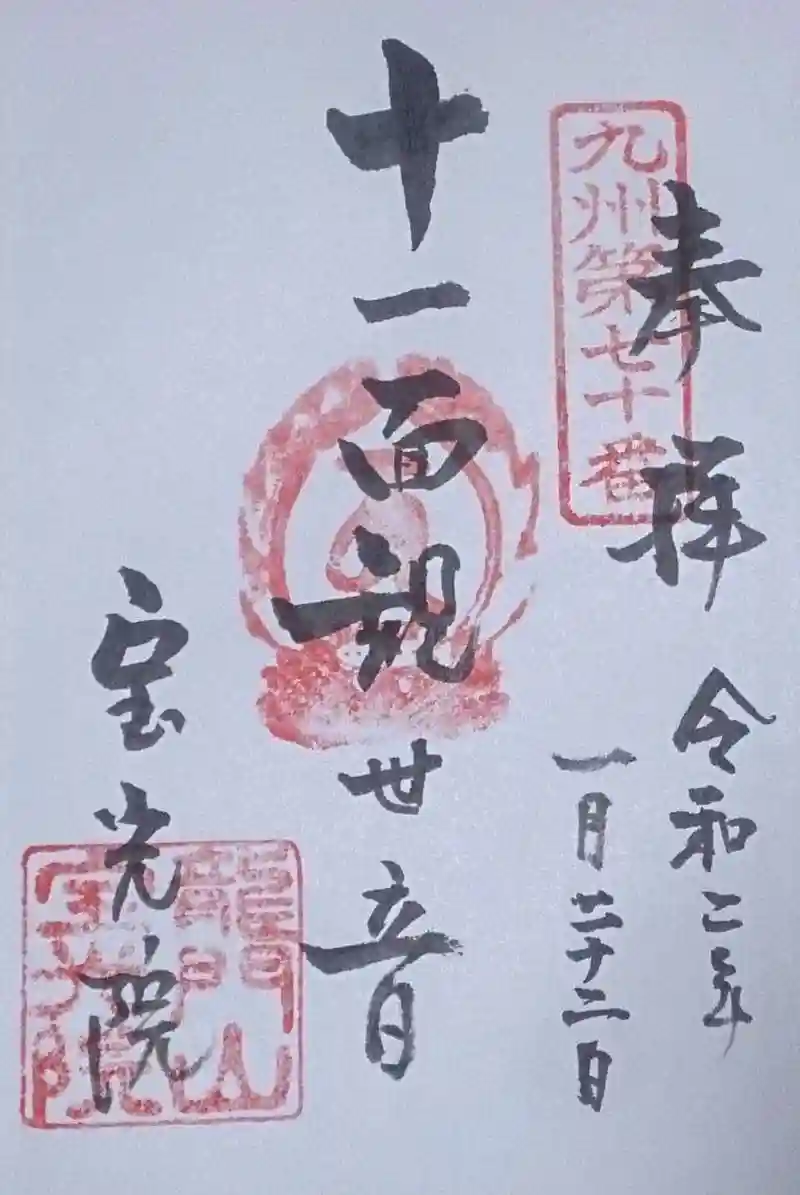 九州第七十番
奉拝
令和二年
一月廿十二日
十一面観世音
宝光院
龍門山